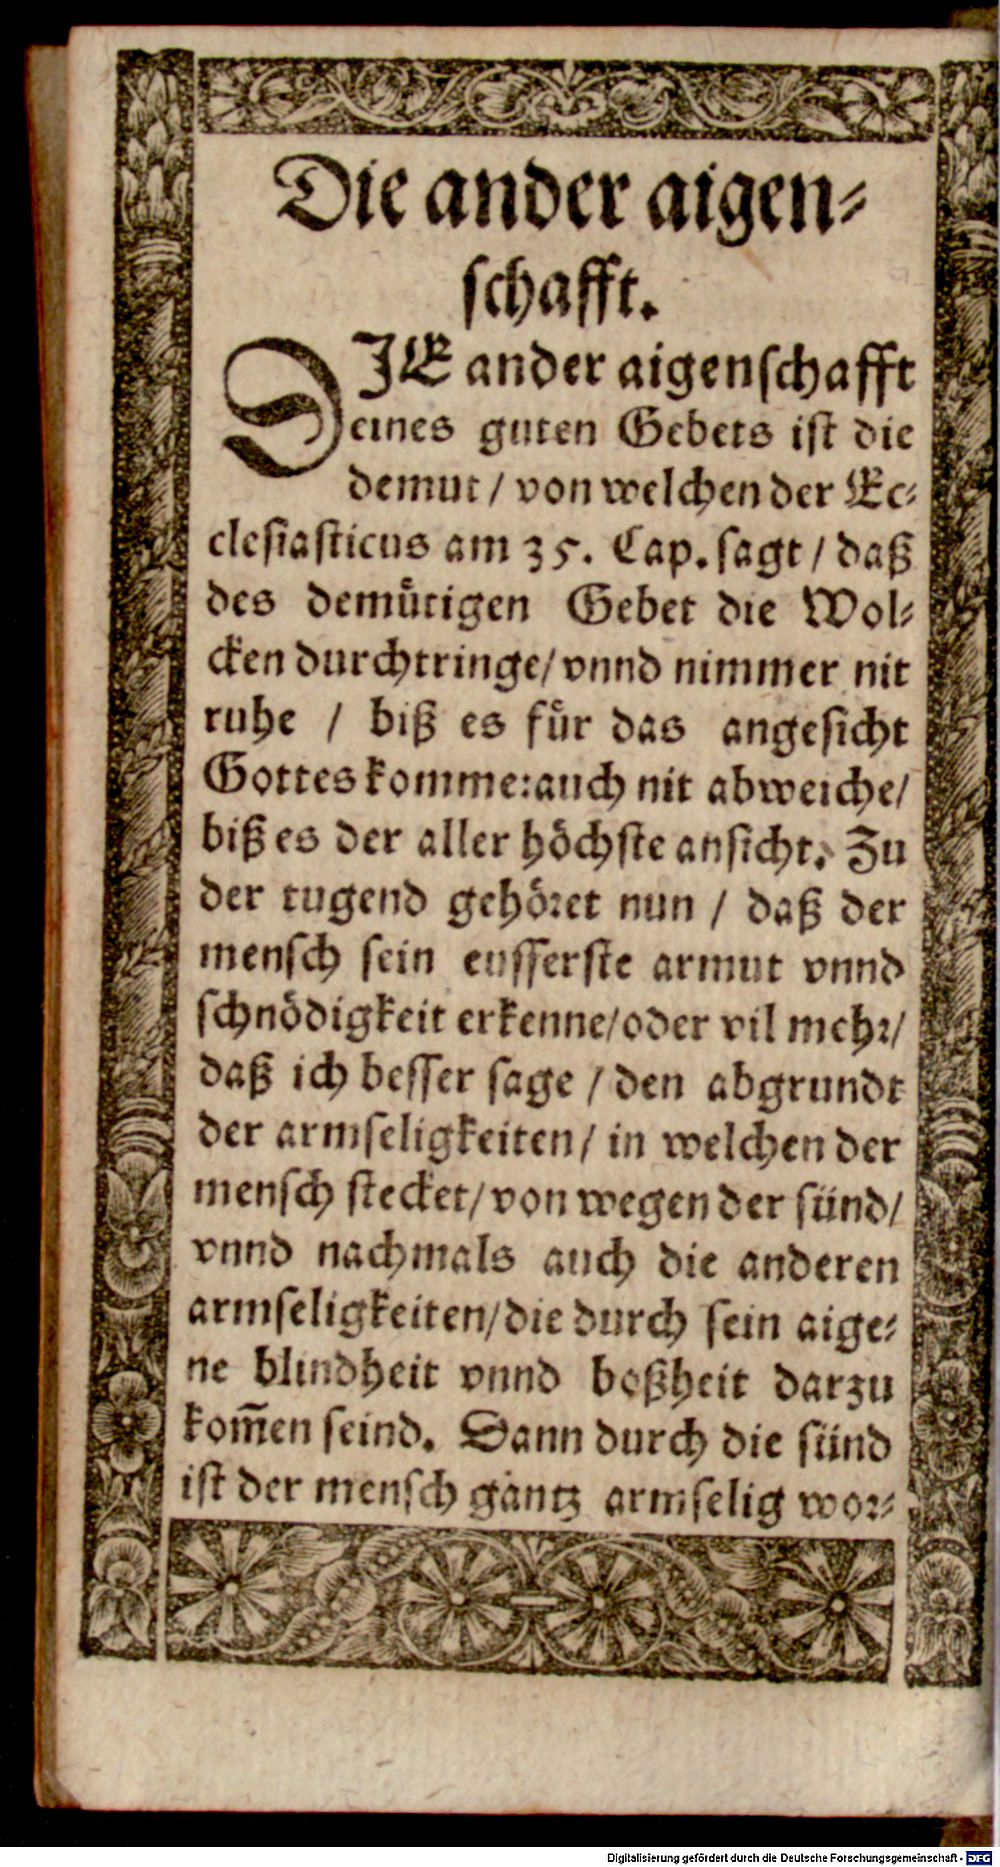 Die ander aigen⸗
schafft.
DIE ander aigenschafft
eines guten Gebets ist die
demut / von welchen der Ec⸗
clesiasticus am 35. Cap. sagt / daß
des demuͤtigen Gebet die Wol⸗
cken durchtringe / vnnd nimmer nit
ruhe / biß es fuͤr das angesicht
Gottes komme: auch nit abweiche /
biß es der aller hoͤchste ansicht. Zu
der tugend gehoͤret nun / daß der
mensch sein eusserste armut vnnd
schnoͤdigkeit erkenne / oder vil mehr /
daß ich besser sage / den abgrundt
der armseligkeiten / in welchen der
mensch stecket / von wegen der sünd /
vnnd nachmals auch die anderen
armseligkeiten / die durch sein aige⸗
ne blindheit vnnd boßheit darzu
kom̃en seind. Dann durch die sünd
ist der mensch gantz armselig wor⸗
Digitalisierung gefördert durch die Deutsche Forschungsgemeinschaft - DFG